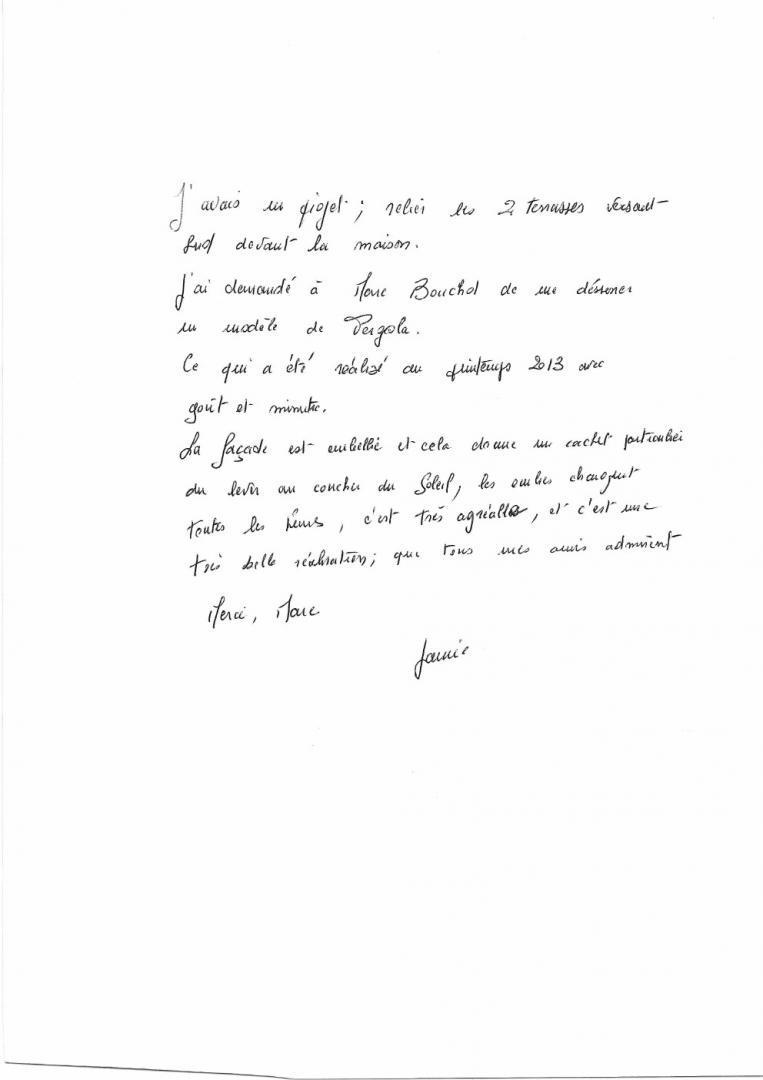 J'avais un projet ; relier les 2 terrasses versant
Sud devant la maison.
J'ai demandé à Marc Bouchol de me déssiner
un modèle de Pergola.
Ce qui a été réalisé au printemps 2013 avec
goût et minutie.
La façade est embellie et cela donne un cachet particulier
du lever au coucher du Soleil, les ombres changent
toutes les heures, c'est très agréable, et c'est une
très belle réalisation ; que tous mes amis admirent
Merci, Marc